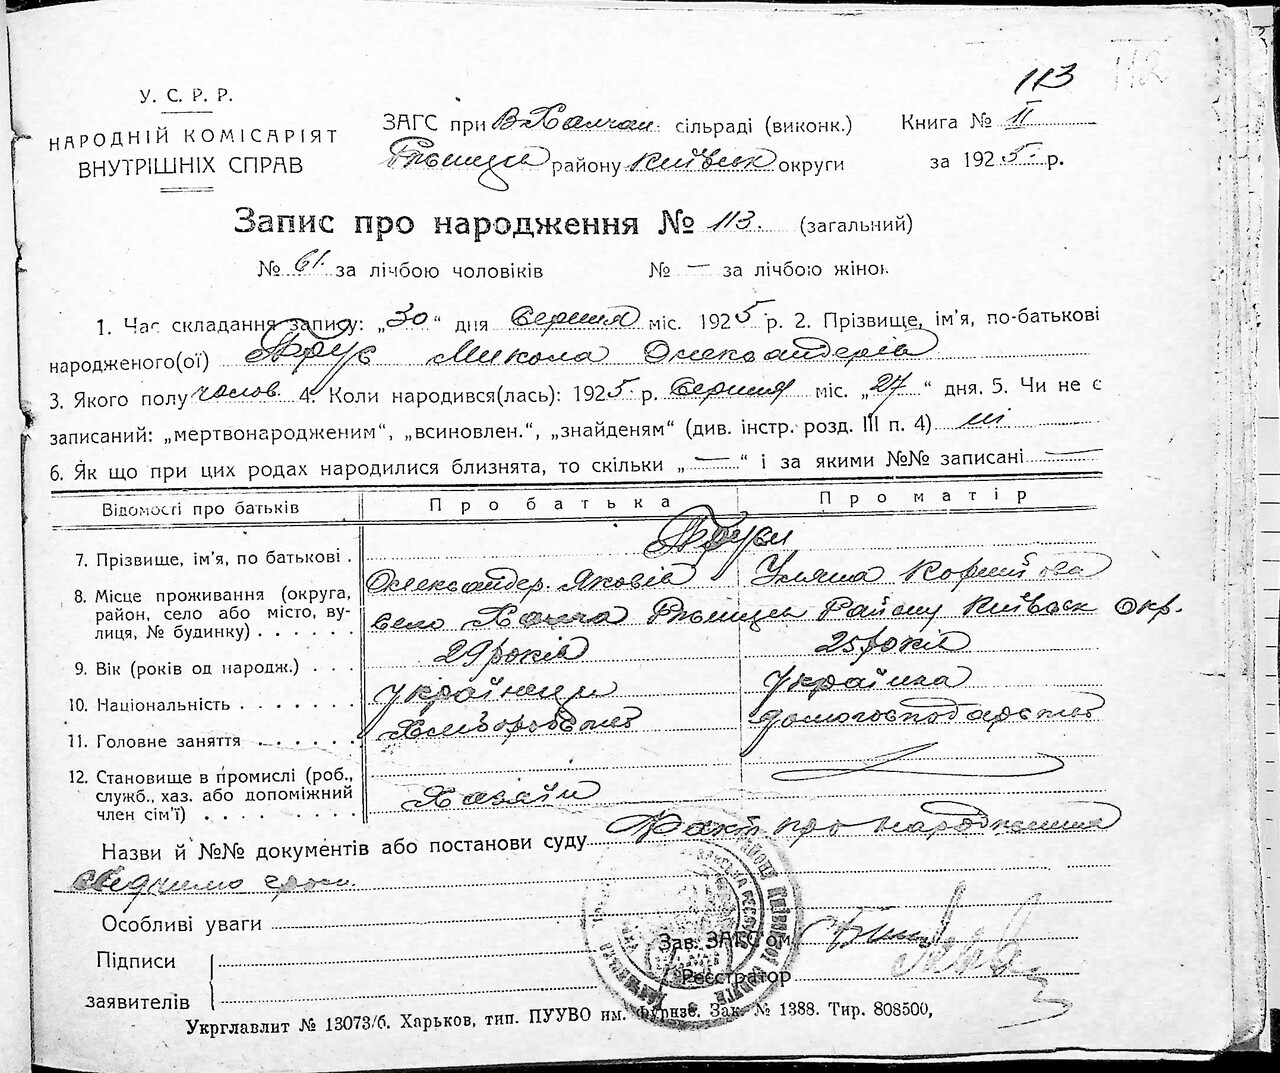 113 112
У. С. Р. Р.
НАРОДНІЙ КОМІСАРІЯТ
ВНУТРІШНІХ СПРАВ
ЗАГС при В Халчан. сільраді (виконк.)
района Київськ округи
Книга № II
за 1925 р.
Запис про народження № 113. (загальний)
№ 61. за лічбою чоловіків № — за лічбою жінок
1. Час складання запису: „30“ дня Серпня міс. 1925 р. 2. Прізвище, ім'я, по-батькові
народженого(ої) Микола Олександерів
3. Якого полу чолов. 4. Коли народився(лась): 1925 р. Серпня міс. „27“ дня. 5. Чи не є
записаний: „мертвонародженим“, „всиновлен.“, „знайденям“ (див. інстр. розд. III п. 4) ні
6. Як що при цих родах народилися близнята, то скільки „—“ і за якими №№ записані —
Відомості про батьків Про батька Про матір
7. Прізвище, ім'я, по батькові .
Олександер. Яковів Уляна
8. Місце проживання (округа, район, село або місто, вулиця, № будинку) . . . . . .
село Халча Району Київськ Окр.
9. Вік (років од народж.) . . . 29 років 25 років
10. Національність . . . . . . . українець українка
11. Головне заняття . . . . . . Хліборобство домогосподарство
12. Становище в промислі (роб., служб., хаз. або допоміжний член сім'ї) . . . . . . . . Хазяїн
Назви й №№ документів або постанови суду Факт про народження
свідчимо
Особливі уваги
Підписи
заявителів
Зав. ЗАГС'ом
Реєстратор
Укрглавлит № 13073/б. Харьков, тип. ПУУВО им. Фрунзе. Зак. № 1388. Тир. 808500,